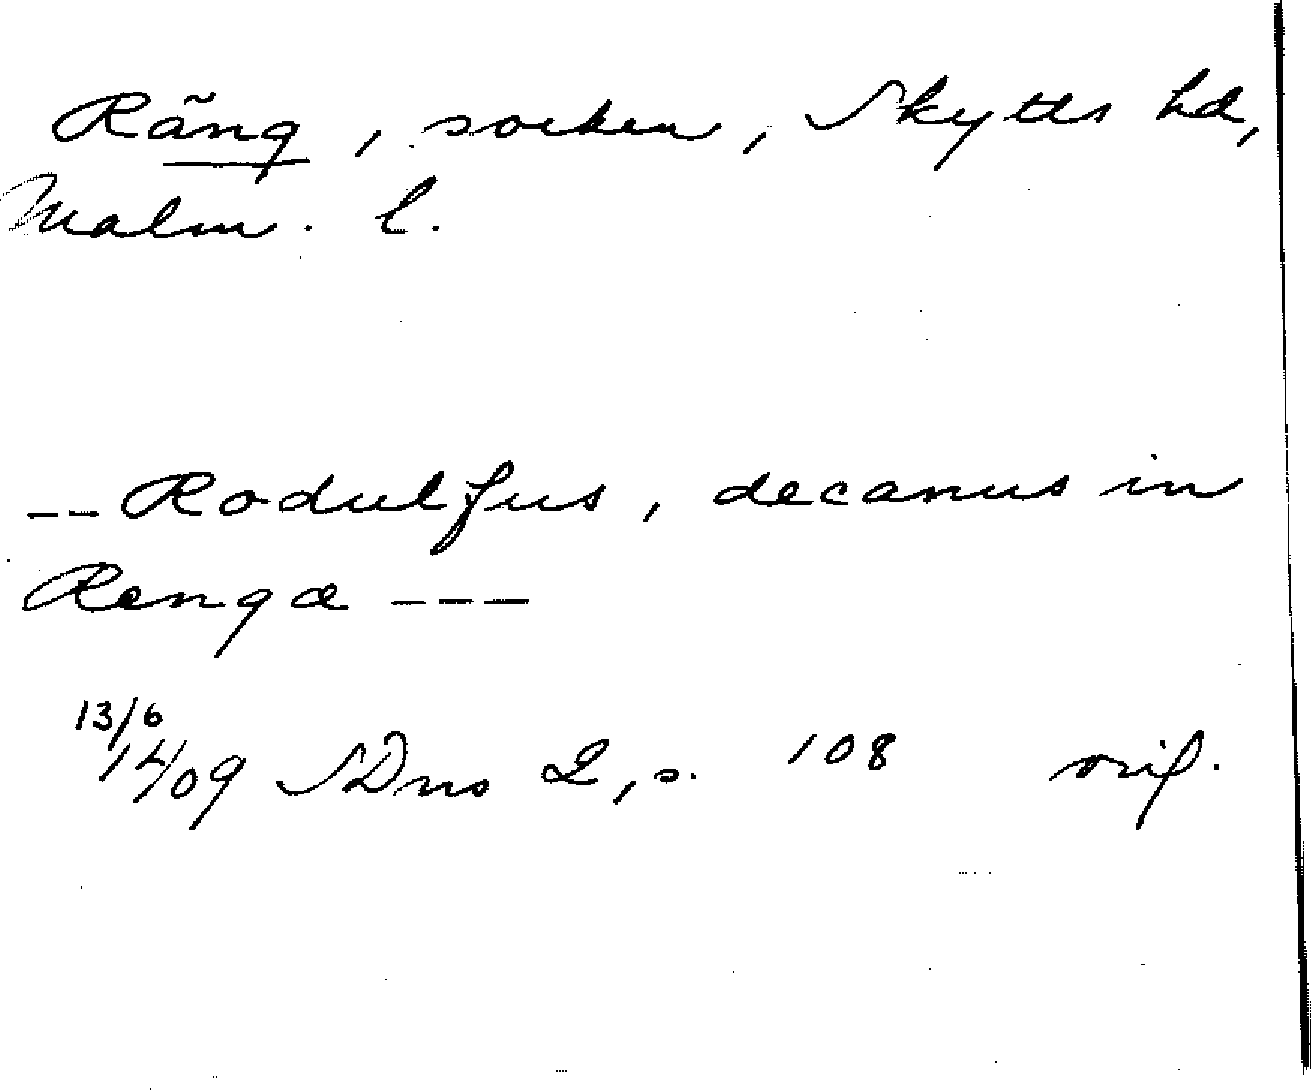 Räng, socken, Skytts hd,
Malm. l.
-- Rodulfus, decanus in
Rengæ ---
13/6
1409 SDns 2, s. 108 orig.